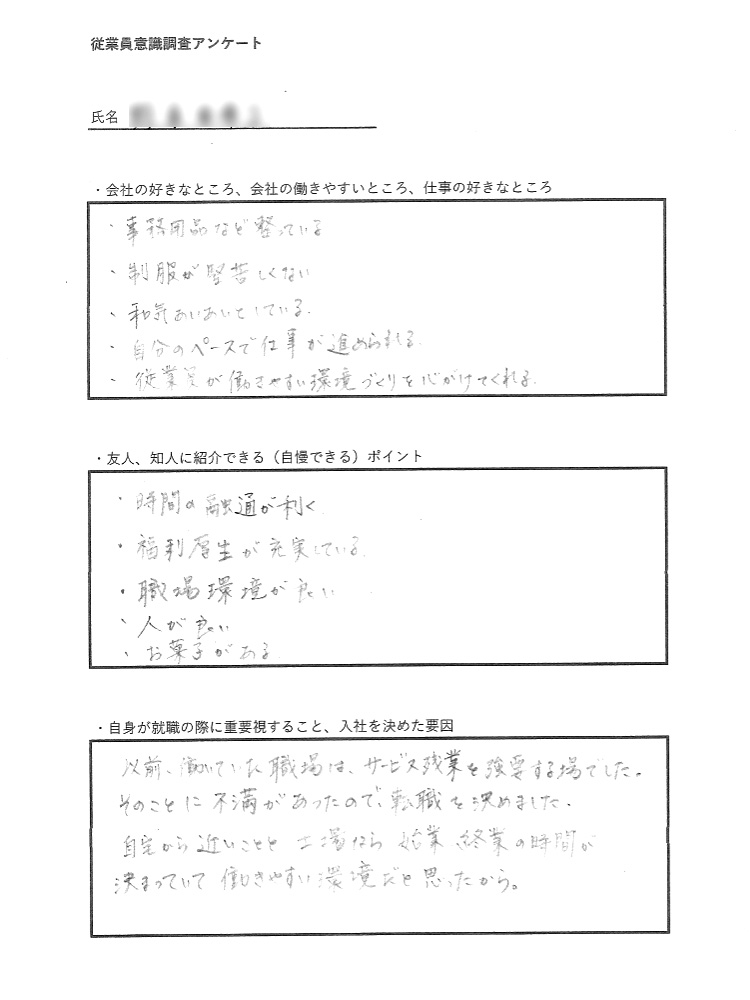 従業員意識調査アンケート
氏名
・会社の好きなところ、会社の働きやすいところ、仕事の好きなところ
・事務用品など整っている
・制服が堅苦しくない
・和気あいあいとしている.
・自分のペースで仕事が進められる.
・従業員が働きやすい環境づくりを心がけてくれる.
・友人、知人に紹介できる（自慢できる）ポイント
・時間の融通が利く
・福利厚生が充実している.
・職場環境が良い
・人が良い
・お菓子がある
・自身が就職の際に重要視すること、入社を決めた要因
以前、働いていた職場は、サービス残業を強要する場でした。
そのことに不満があったので、転職を決めました.
自宅から近いことと工場なら始業、終業の時間が
決まっていて働きやすい環境だと思ったから。